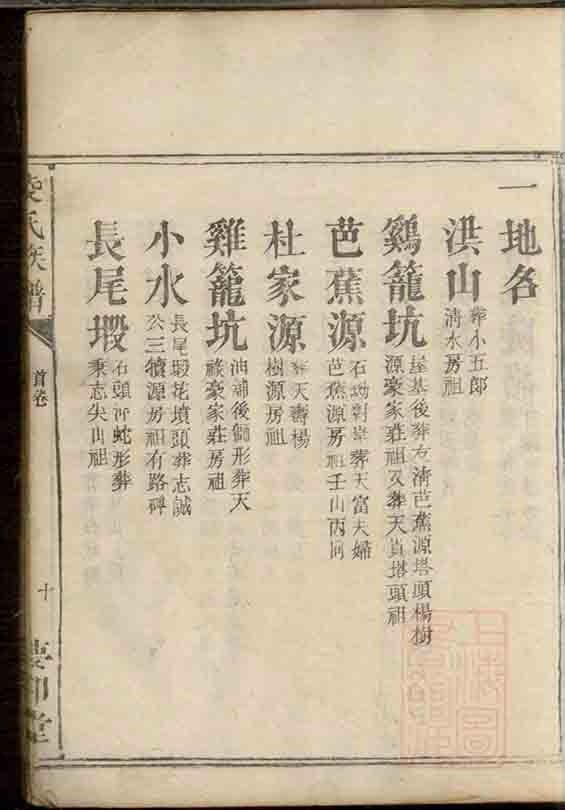 一地名
洪山
葬小五郎
清水房祖
鷄籠坑
屋基後葬友清芭蕉源塔頭楊樹
源豪家莊祖又葬天貴塔頭祖
芭蕉源
石坳對岸葬天富夫婦
芭蕉源房祖壬山丙向
杜家源
葬天壽楊
樹源房祖
雞籠坑
油浦後獅形葬天
祿豪家莊房祖
小水
長尾塅花墳頭葬志誠
公三犢源房祖有路碑
長尾塅
石頭冲蛇形葬
秉志尖山祖
氏族譜
首卷
十
上海圖